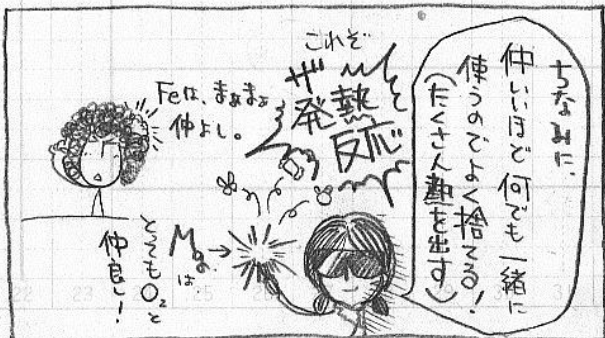 ちなみに、
仲いいほど何でも一緒に
使うのでよく捨てる!
(たくさん熱を出す)
これぞ
ザ
発熱
反応
Feは、まぁまぁ
仲よし。
Mgは→
とてもO₂と
仲良し!
22 23 25